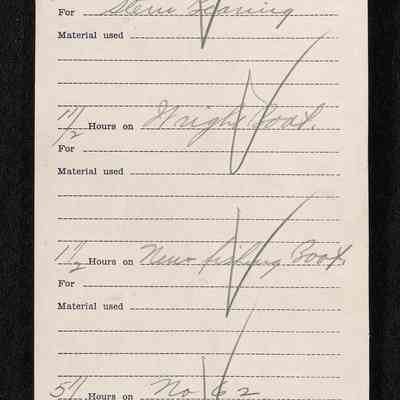 For Stern Bearing
Material used
1 1/2 Hours on Wright Boat.
For
Material used
1 1/2 Hours on New fishing Boat.
For
Material used
5 1/2 Hours on No 62